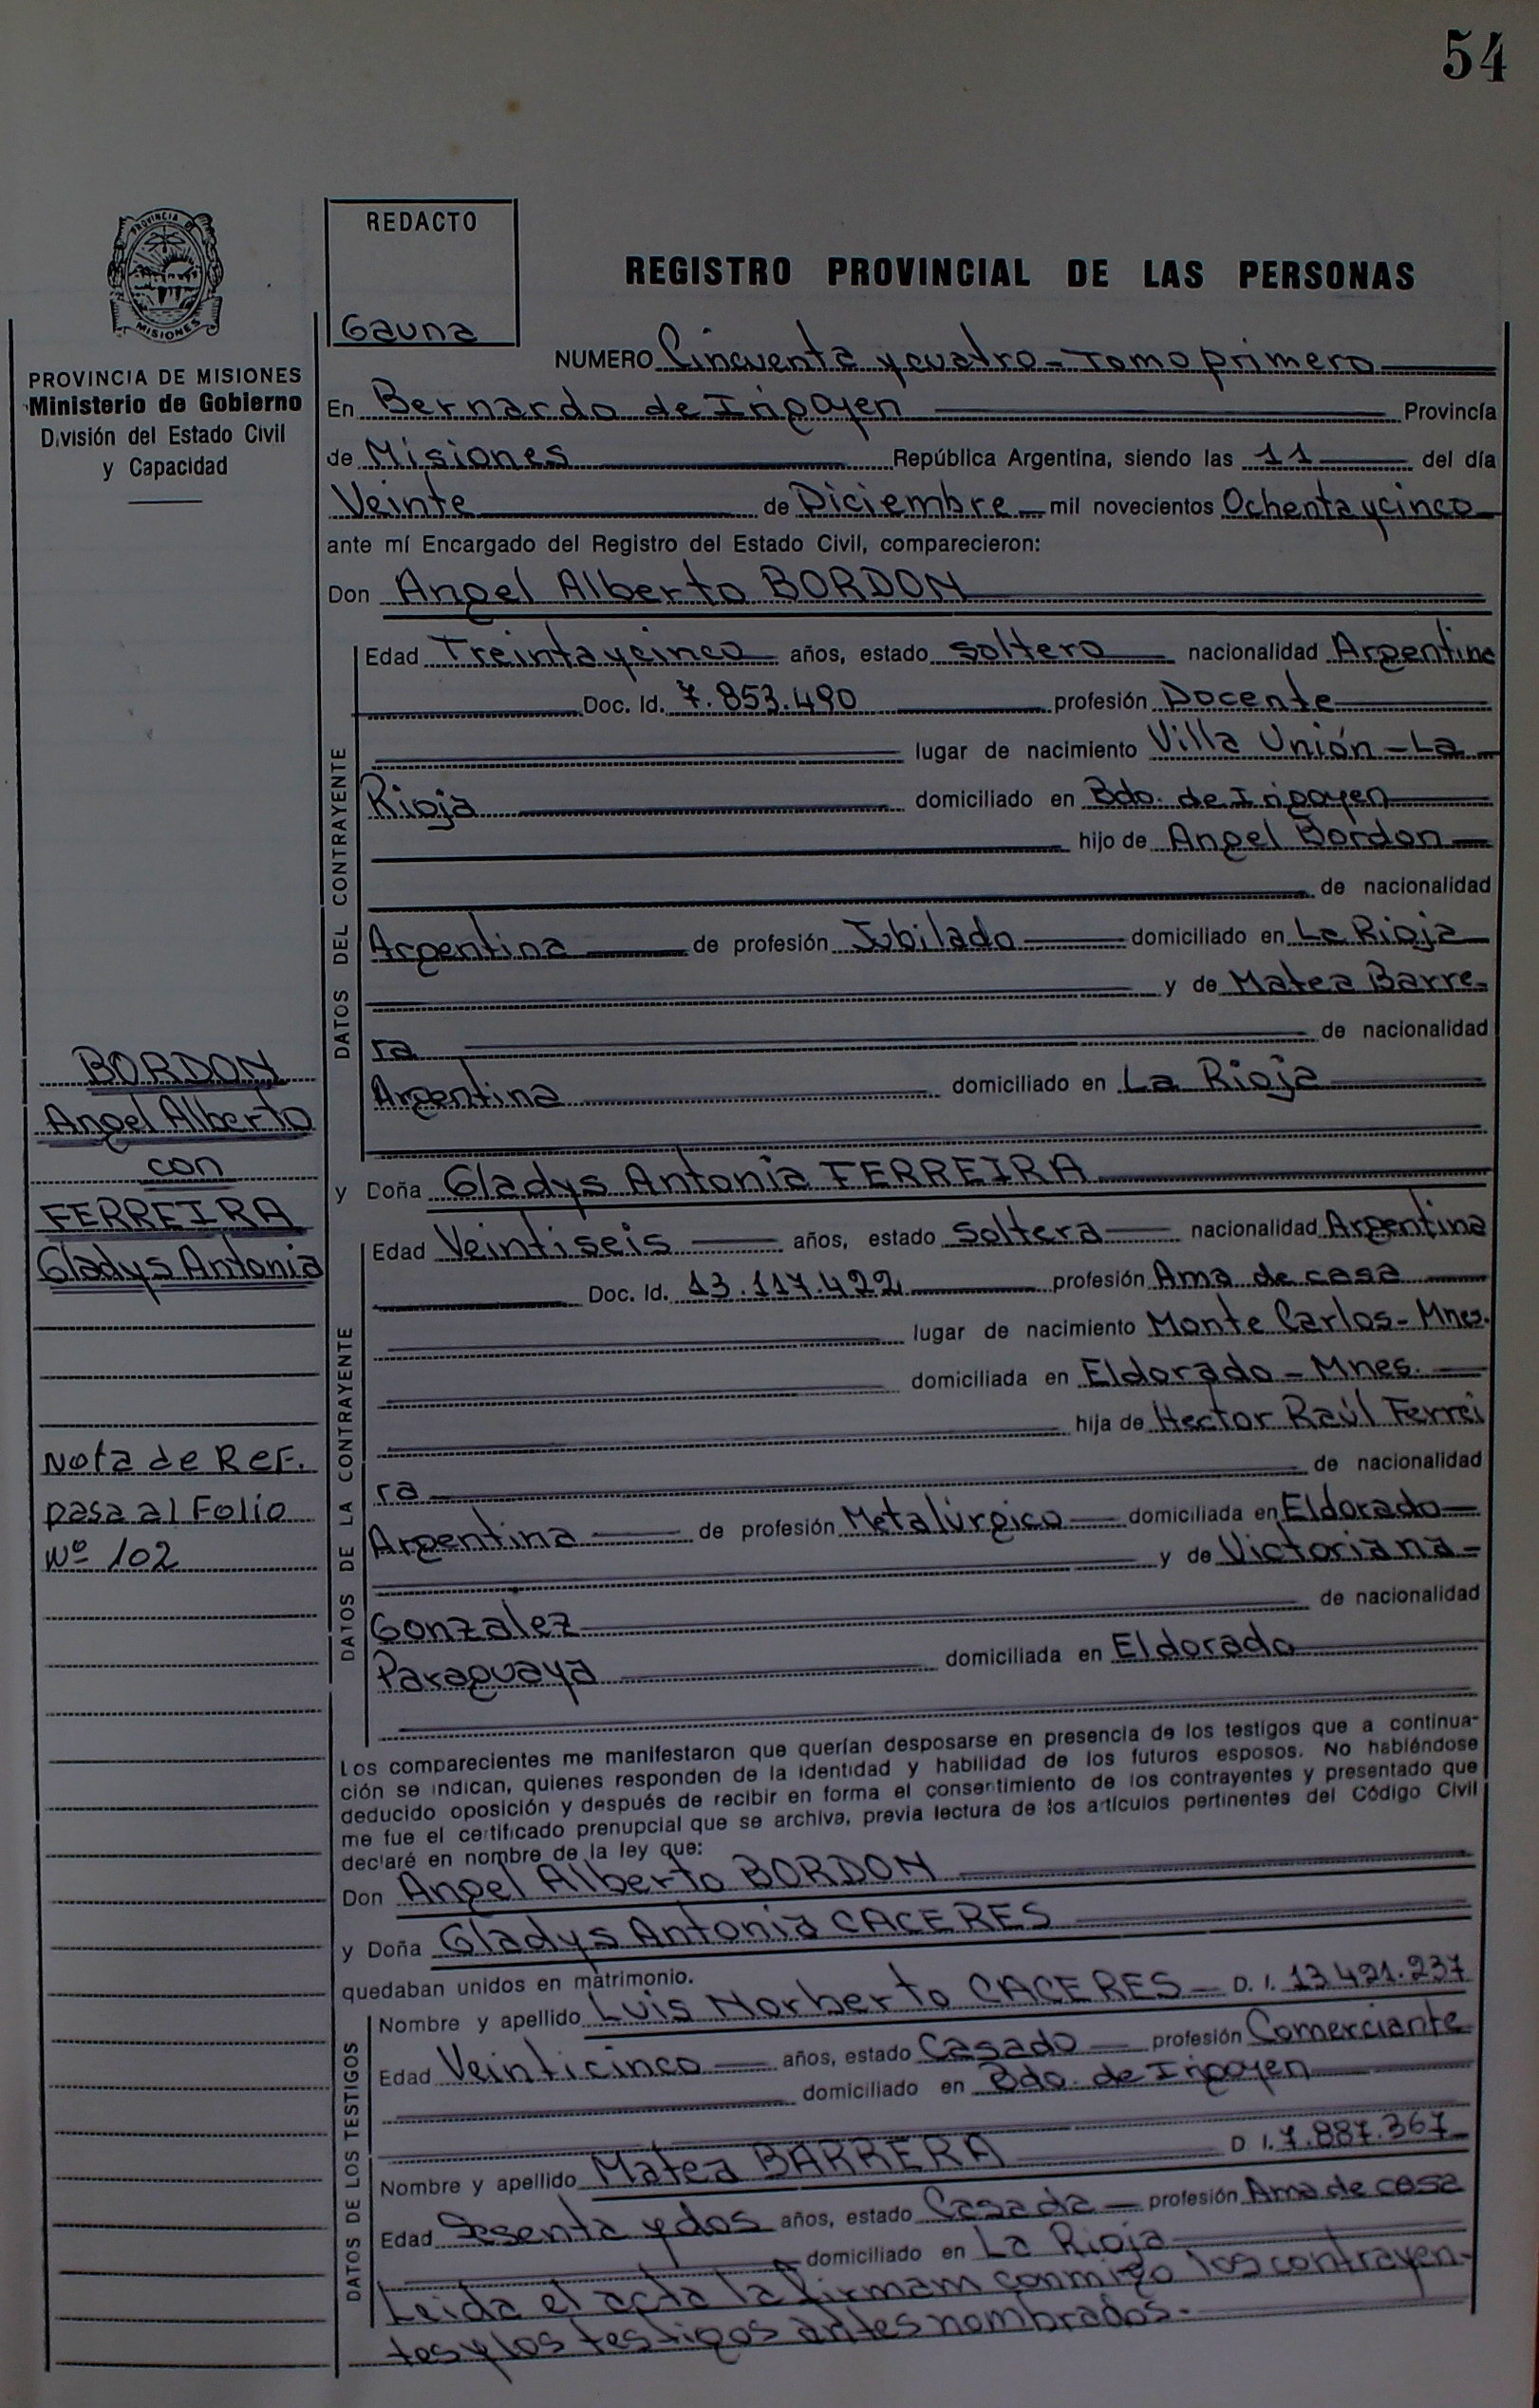 54
PROVINCIA DE
MISIONES
REDACTO
Gauna
REGISTRO PROVINCIAL DE LAS PERSONAS
PROVINCIA DE MISIONES
Ministerio de Gobierno
División del Estado Civil
y Capacidad
NUMERO Cincuenta y cuatro - Tomo primero
En Bernardo de Irigoyen Provincia
de Misiones República Argentina, siendo las 11 del día
Veinte de Diciembre mil novecientos Ochenta y cinco
ante mí Encargado del Registro del Estado Civil, comparecieron:
Don Angel Alberto BORDON
DATOS DEL CONTRAYENTE
Edad Treinta y cinco años, estado soltero nacionalidad Argentina
Doc. Id. 7.853.490 profesión Docente
lugar de nacimiento Villa Unión - La
Rioja domiciliado en Bdo. de Irigoyen
hijo de Angel Bordon
de nacionalidad
Argentina de profesión Jubilado domiciliado en La Rioja
y de Matea Barre-
ra de nacionalidad
Argentina domiciliado en La Rioja
BORDON
Angel Alberto
con
FERREIRA
Gladys Antonia
Nota de Ref.
pasa al Folio
Nº 102
y Doña Gladys Antonia FERREIRA
DATOS DE LA CONTRAYENTE
Edad Veintiseis años, estado soltera nacionalidad Argentina
Doc. Id. 13.117.422 profesión Ama de casa
lugar de nacimiento Monte Carlos - Mnes.
domiciliada en Eldorado - Mnes.
hija de Hector Raúl Ferrei
ra de nacionalidad
Argentina de profesión Metalúrgico domiciliada en Eldorado
y de Victoriana -
Gonzalez de nacionalidad
Paraguaya domiciliada en Eldorado
Los comparecientes me manifestaron que querían desposarse en presencia de los testigos que a continua-
ción se indican, quienes responden de la identidad y habilidad de los futuros esposos. No habiéndose
deducido oposición y después de recibir en forma el consentimiento de los contrayentes y presentado que
me fue el certificado prenupcial que se archiva, previa lectura de los artículos pertinentes del Código Civil
declaré en nombre de la ley que:
Don Angel Alberto BORDON
y Doña Gladys Antonia CACERES
quedaban unidos en matrimonio.
DATOS DE LOS TESTIGOS
Nombre y apellido Luis Norberto CACERES - D. I. 13 421.237
Edad Veinticinco años, estado Casado profesión Comerciante
domiciliado en Bdo. de Irigoyen
DATOS DE LOS TESTIGOS
Nombre y apellido Matea BARRERA D I. 7.887.367
Edad Sesenta y dos años, estado Casada profesión Ama de casa
domiciliado en La Rioja
Leida el acta la firmam conmigo los contrayen-
tes y los testigos antes nombrados.-